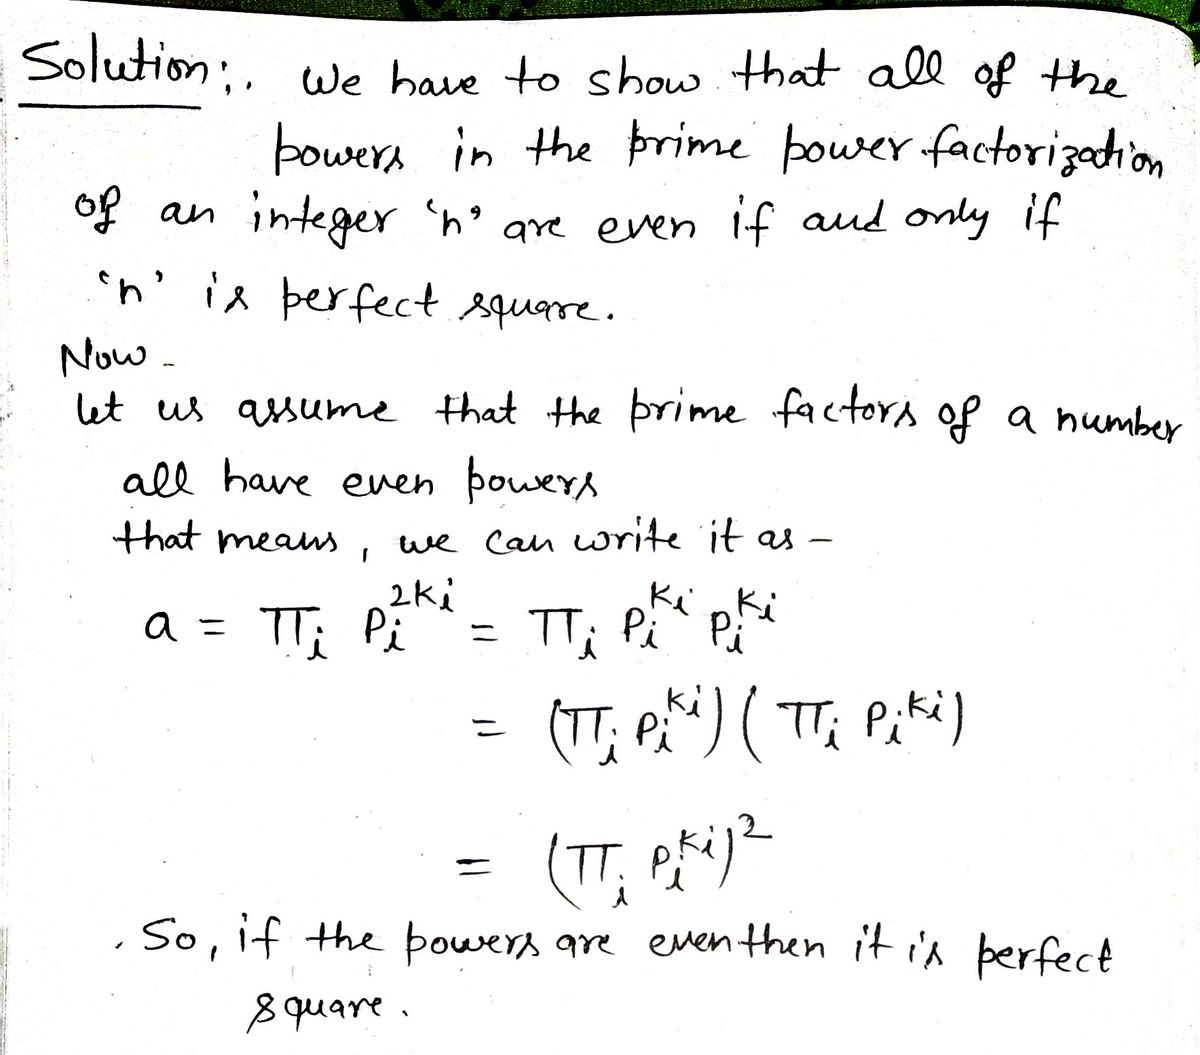 Solution:. We have to show that all of the
powers in the prime power factorization
of an integer 'n' are even if and only if
'n' is perfect square.
Now -
let us assume that the prime factors of a number
all have even powers
that means, we can write it as -
a = πᵢ pᵢ^{2kᵢ} = πᵢ pᵢ^{kᵢ} pᵢ^{kᵢ}
= (πᵢ pᵢ^{kᵢ}) (πᵢ pᵢ^{kᵢ})
= (πᵢ pᵢ^{kᵢ})²
. So, if the powers are even then it is perfect
square.